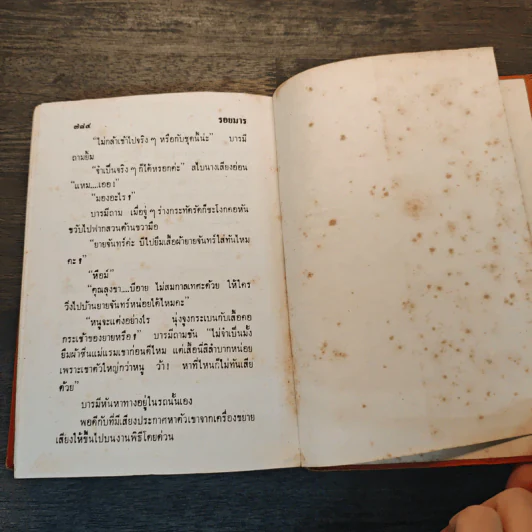 ๗๘๔ รอยมาร
"ไม่กล้าเข้าไปจริง ๆ หรือกับชุดนี้น่ะ" บารมี
ถามยิ้ม
"จำเป็นจริง ๆ ก็ได้หรอกค่ะ" สโบนางเลี่ยงอ่อน
"แหม....เออ!"
"มองอะไร?"
บารมีถาม เมื่อจู่ ๆ ร่างกระทัดรัดก็ชะโงกคอหัน
ขวับไปฟากสวนด้านขวามือ
"ยายจันทร์ค่ะ บีไปยืมเสื้อผ้ายายจันทร์ใส่ทันไหม
คะ?"
"หือม์"
"คุณลุงขา....บีอาย ไม่สมกาลเทศะด้วย ให้ใคร
วิ่งไปบ้านยายจันทร์หน่อยได้ไหมคะ"
"หนูจะแต่งอย่างไร นุ่งจูงกระเบนกับเสื้อคอ
กระเช้าของยายหรือ?" บารมีถามขัน "ไม่จำเป็นมั้ง
ยืมผ้าซิ่นแม่แรมเขาก่อนดีไหม แต่เสื้อนี่สิลำบากหน่อย
เพราะเขาตัวใหญ่กว่าหนู ว้า! หาที่ไหนก็ไม่ทันเสีย
ด้วย"
บารมีหันหาทางอยู่ในรถนั้นเอง
พอดีกับที่มีเสียงประกาศหาตัวเขาจากเครื่องขยาย
เสียงให้ขึ้นไปบนงานพิธีโดยด่วน